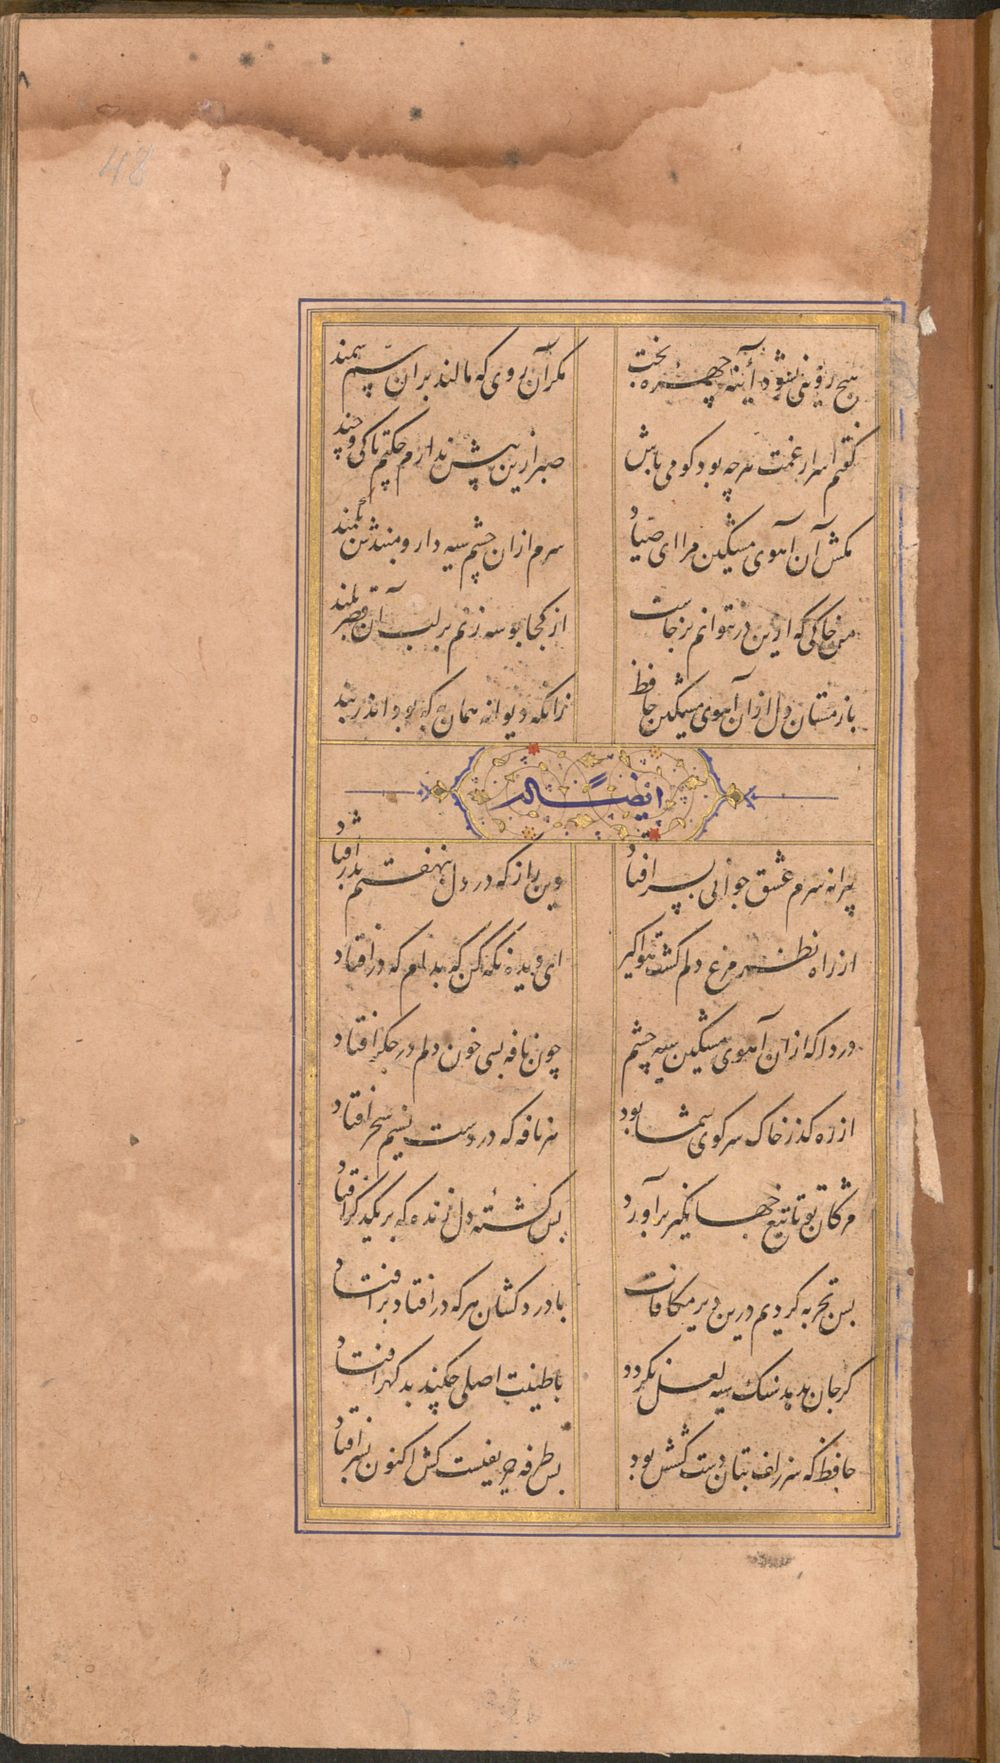 48
هیچ رویی نشود آینه چهره بخت
مکر آن روی که مالند بران سم سمند
کفتم اسرار غمت هرچه بود کو می باش
صبر ازین بیش ندارم چکنم تا کی و چند
مکش آن آهوی مشکین مرا ای صیاد
شرم ازان چشم سیه دار و مبندش بکمند
من خاکی که ازین در نتوانم برخاست
از کجا بوسه زنم بر لب آن قصر بلند
باز مستان دل ازان آهوی مشکین حافظ
زانکه دیوانه همان به که بود اندر بند
ایضاً له
پیرانه سرم عشق جوانی بسر افتاد
وین راز که در دل بنهفتم بدر افتاد
از راه نظر مرغ دلم کشت هواکیر
ای دیده نکه کن که بدام که در افتاد
دردا که ازان آهوی مشکین سیه چشم
چون نافه بسی خون دلم در جکر افتاد
از ره کذر خاک سر کوی شما بود
هر نافه که در دست نسیم سحر افتاد
مژکان تو تا تیغ جهانکیر برآورد
بس کشته دل زنده که بر یکدکر افتاد
بس تجربه کردیم درین دیر مکافات
با درد کشان هر که در افتاد بر افتاد
کر جان بدهد سنک سیه لعل نکردد
با طینت اصلی چکند بد کهر افتاد
حافظ که سر زلف بتان دست کشش بود
بس طرفه حریفیست کش اکنون بسر افتاد